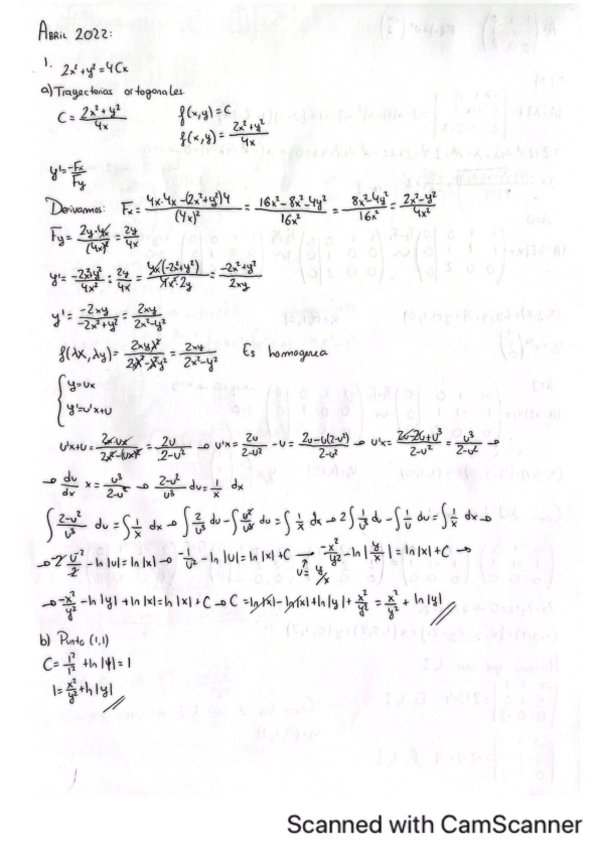 ABRIL 2022:
1. 2x²+y²=4Cx
a) Trayectorias ortogonales
C = (2x²+y²)/(4x)    f(x,y)=C
f(x,y) = (2x²+y²)/(4x)
y' = -Fx/Fy
Derivamos: Fx = (4x·4x-(2x²+y²)4)/(4x)² = (16x²-8x²-4y²)/(16x²) = (8x²-4y²)/(16x²) = (2x²-y²)/(4x²)
Fy = (2y·4x)/(4x)² = 2y/4x
y' = (-2x²+y²)/(4x²) : 2y/4x = (4x(-2x²+y²))/(4x²·2y) = (-2x²+y²)/(2xy)
y' = (-2xy)/(-2x²+y²) = (2xy)/(2x²-y²)
f(λx,λy) = (2xyλ²)/(2λ²x²-λ²y²) = (2xy)/(2x²-y²)    Es homogenea
{ y=ux
y'=u'x+u
u'x+u = (2x·ux)/(2x²-(ux)²) = 2u/(2-u²) → u'x = 2u/(2-u²) - u = (2u-u(2-u²))/(2-u²) → u'x = (2u-2u+u³)/(2-u²) = u³/(2-u²) →
→ du/dx x = u³/(2-u²) → (2-u²)/u³ du = 1/x dx
∫ (2-u²)/u³ du = ∫ 1/x dx → ∫ 2/u³ du - ∫ u²/u³ du = ∫ 1/x dx → 2∫ 1/u³ d - ∫ 1/u du = ∫ 1/x dx →
→ 2 u⁻²/2 - ln|u| = ln|x| → -1/u² - ln|u| = ln|x| + C → -x²/y² - ln|y/x| = ln|x| + C →
u = y/x
→ -x²/y² - ln|y| + ln|x| = ln|x| + C → C = ln|x| - ln|x| + ln|y| + x²/y² = x²/y² + ln|y|
b) Punto (1,1)
C = 1²/1² + ln|1| = 1
1 = x²/y² + ln|y|
Scanned with CamScanner